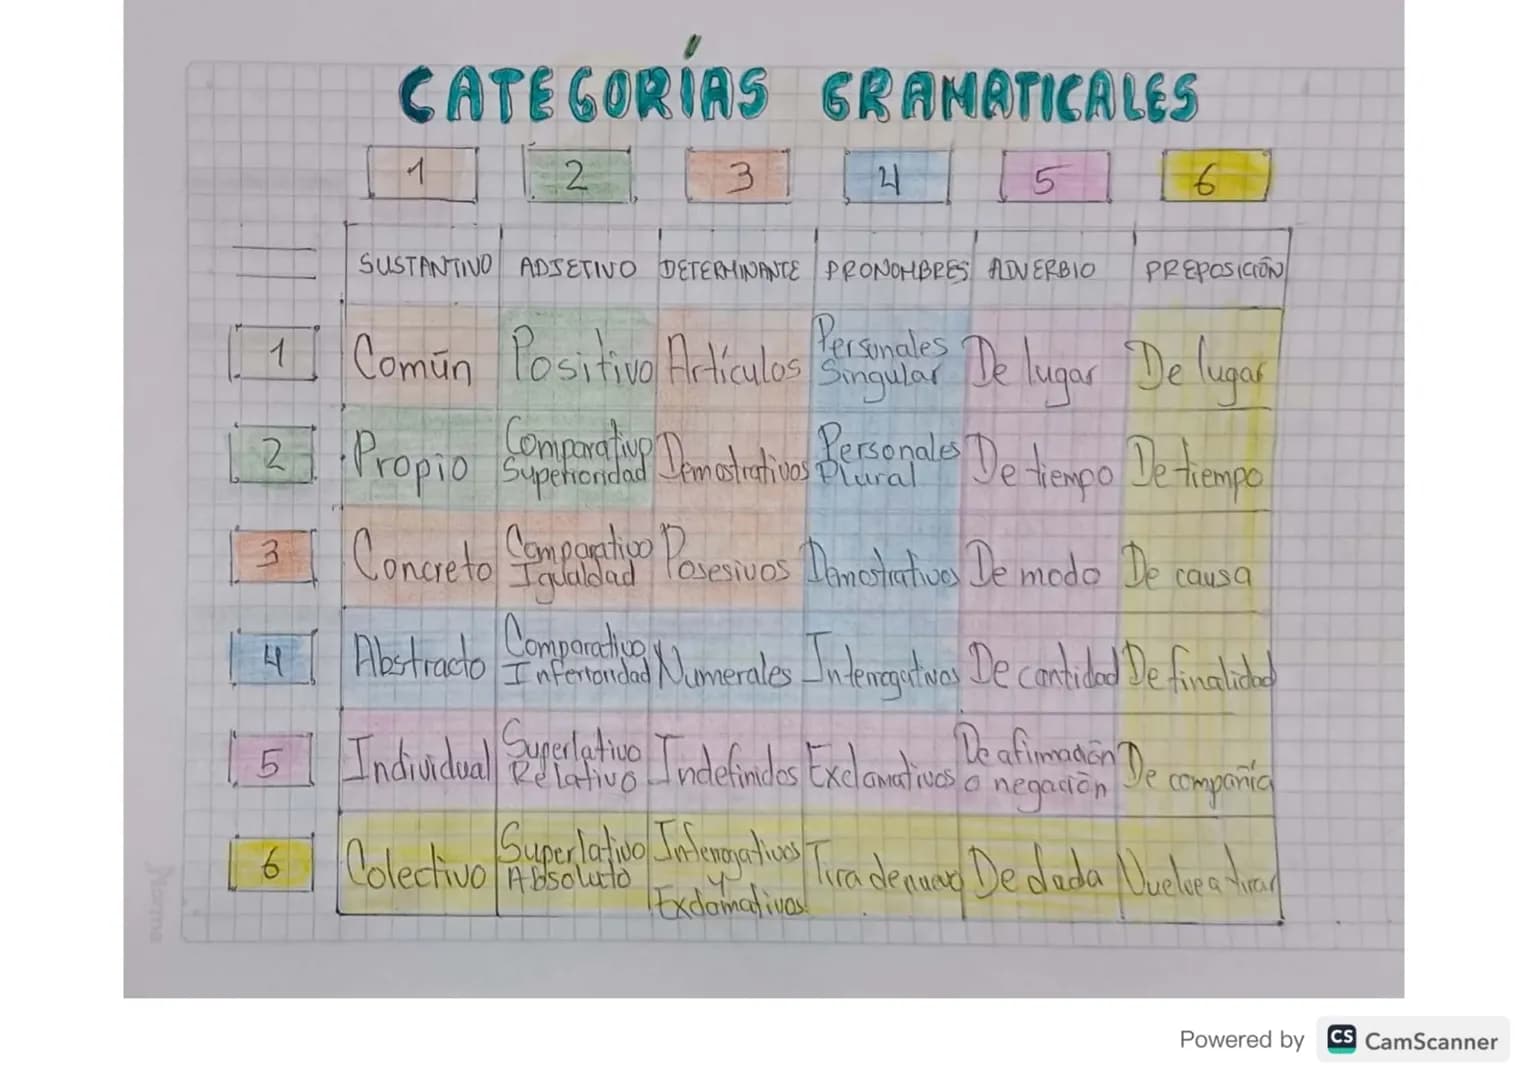 CATEGORÍAS GRAMATICALES
1 2 3 4 5 6
SUSTANTIVO ADJETIVO DETERMINANTE PRONOMBRES ADVERBIO PREPOSICIÓN
1 Común Positivo Artículos Personales Singular De lugar De lugar
2 Propio Comparativo Superioridad Demostrativos Personales Plural De tiempo De tiempo
3 Concreto Comparativo Igualdad Posesivos Demostrativos De modo De causa
4 Abstracto Comparativo Inferioridad Numerales Interrogativos De cantidad De finalidad
5 Individual Superlativo Relativo Indefinidos Exclamativos De afirmación o negación De compañía
6 Colectivo Superlativo Absoluto Interrogativos y Exclamativos Tira de nuevo De dada Vuelve a tirar
Norma
Powered by CS CamScanner